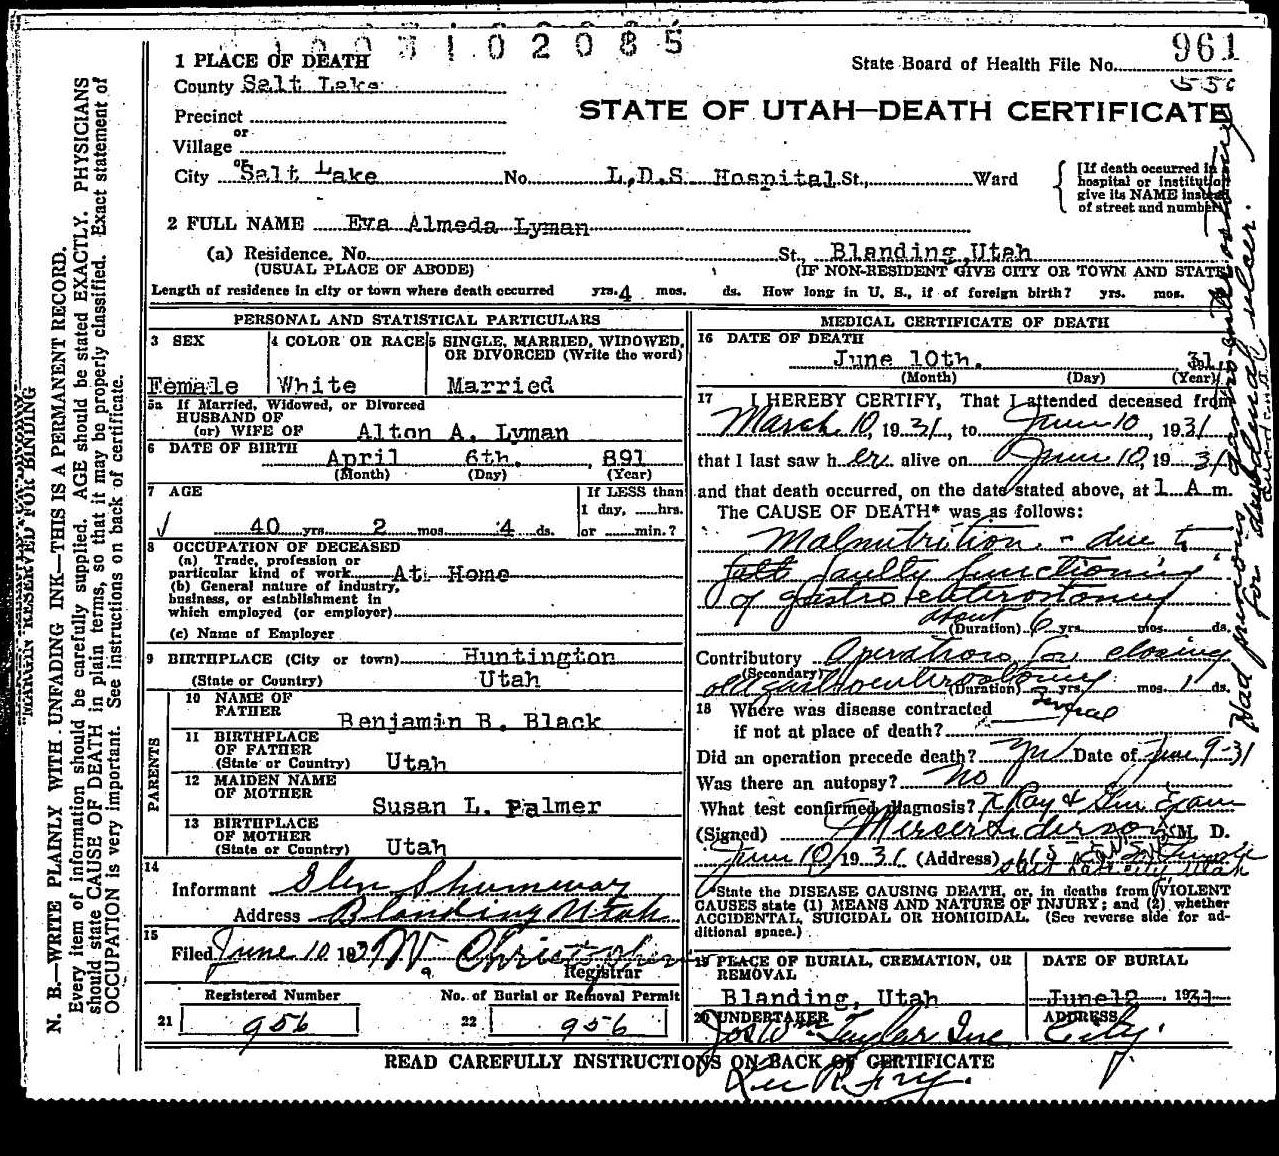 1003102085
961
State Board of Health File No.
556
STATE OF UTAH—DEATH CERTIFICATE
1 PLACE OF DEATH
County Salt Lake
Precinct
or
Village
or
City Salt Lake No. L.D.S. Hospital St., Ward
[If death occurred in
hospital or institution
give its NAME instead
of street and number]
2 FULL NAME Eva Almeda Lyman
(a) Residence. No. St., Blanding Utah
(USUAL PLACE OF ABODE) (IF NON-RESIDENT GIVE CITY OR TOWN AND STATE)
Length of residence in city or town where death occurred yrs. 4 mos. ds. How long in U. S., if of foreign birth? yrs. mos.
PERSONAL AND STATISTICAL PARTICULARS
3 SEX
Female
4 COLOR OR RACE
White
5 SINGLE, MARRIED, WIDOWED,
OR DIVORCED (Write the word)
Married
5a If Married, Widowed, or Divorced
HUSBAND OF
(or) WIFE OF Alton A. Lyman
6 DATE OF BIRTH April 6th. , 891
(Month) (Day) (Year)
7 AGE
40 yrs. 2 mos. 4 ds.
If LESS than
1 day, hrs.
or min.?
8 OCCUPATION OF DECEASED
(a) Trade, profession or
particular kind of work At Home
(b) General nature of industry,
business, or establishment in
which employed (or employer)
(c) Name of Employer
9 BIRTHPLACE (City or town) Huntington
(State or Country) Utah
PARENTS
10 NAME OF
FATHER Benjamin B. Black
11 BIRTHPLACE
OF FATHER
(State or Country) Utah
12 MAIDEN NAME
OF MOTHER Susan L. Palmer
13 BIRTHPLACE
OF MOTHER
(State or Country) Utah
14
Informant Glen Shumway
Address Blanding Utah
15
Filed June 10 1931 Christopherson
Registrar
Registered Number No. of Burial or Removal Permit
21 956 22 956
MEDICAL CERTIFICATE OF DEATH
16 DATE OF DEATH
June 10th. 31,
(Month) (Day) (Year)
17 I HEREBY CERTIFY, That I attended deceased from
March 10, 1931, to June 10, 1931
that I last saw her alive on June 10, 1931
and that death occurred, on the date stated above, at 1 A m.
The CAUSE OF DEATH* was as follows:
Malnutrition - due to
faulty functioning
of gastro enterostomy
about
(Duration) 6 yrs. mos. ds.
Contributory Operation for closing
(Secondary)
old gastroenterostomy (Duration) yrs. mos. 1 ds.
18 Where was disease contracted
if not at place of death?
Did an operation precede death? Yes Date of June 9-31
Was there an autopsy? No
What test confirmed diagnosis? X Ray & Gen Exam
(Signed) Mercer Anderson M. D.
June 10 1931 (Address)
Salt Lake City Utah
*State the DISEASE CAUSING DEATH, or, in deaths from VIOLENT
CAUSES state (1) MEANS AND NATURE OF INJURY; and (2) whether
ACCIDENTAL, SUICIDAL OR HOMICIDAL. (See reverse side for ad-
ditional space.)
19 PLACE OF BURIAL, CREMATION, OR
REMOVAL
Blanding, Utah
DATE OF BURIAL
June 12 1931
20 UNDERTAKER
Jos Wm Taylor Inc
ADDRESS
City.
READ CAREFULLY INSTRUCTIONS ON BACK OF CERTIFICATE
MARGIN RESERVED FOR BINDING
N. B.—WRITE PLAINLY WITH UNFADING INK—THIS IS A PERMANENT RECORD.
Every item of information should be carefully supplied. AGE should be stated EXACTLY. PHYSICIANS
should state CAUSE OF DEATH in plain terms, so that it may be properly classified. Exact statement of
OCCUPATION is very important. See instructions on back of certificate.
Had previous gastroenterostomy
for duodenal ulcer.